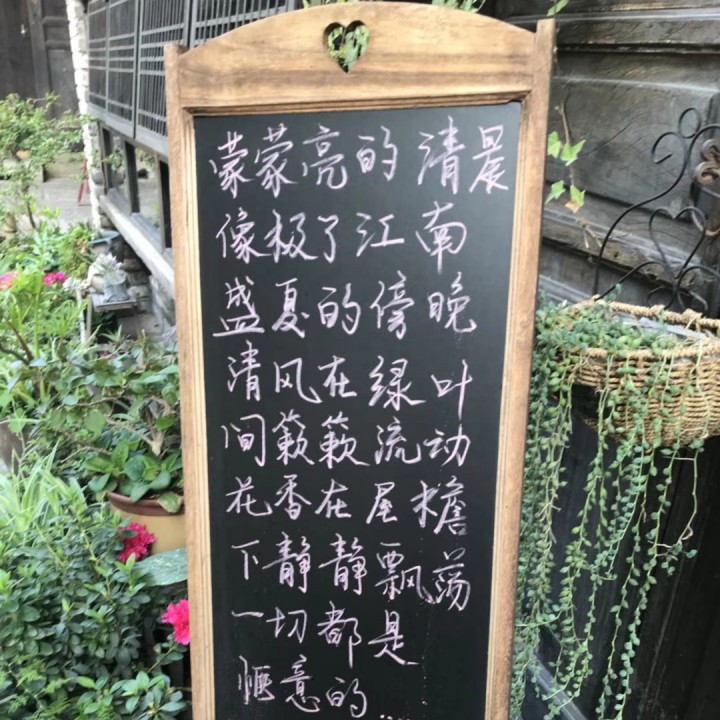 蒙蒙亮的清晨
像极了江南
盛夏的傍晚
清风在绿叶
间簌簌流动
花香在屋檐
下静静飘荡
一切都是
惬意的